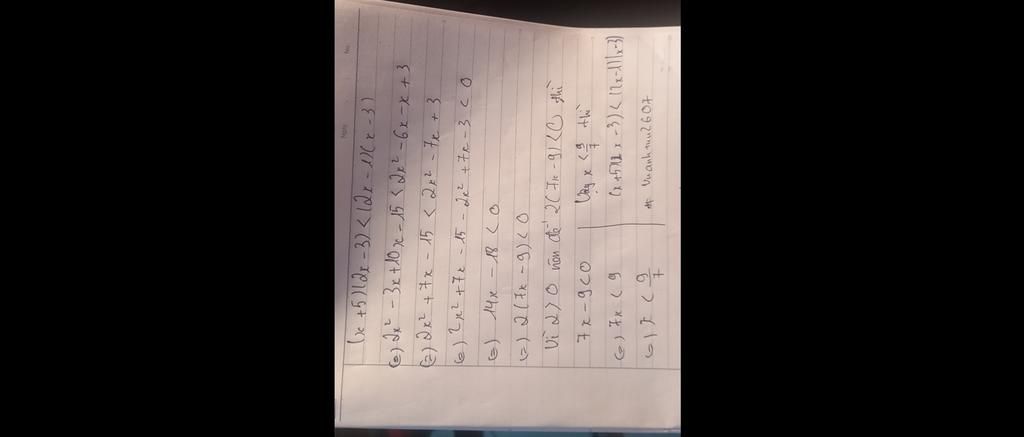 No.
Date
(x + 5)(2x - 3) < (2x - 1)(x - 3)
(=) 2x² - 3x + 10x - 15 < 2x² - 6x - x + 3
(=) 2x² + 7x - 15 < 2x² - 7x + 3
(=) 2x² + 7x - 15 - 2x² + 7x - 3 < 0
(=) 14x - 18 < 0
(=) 2(7x - 9) < 0
Vì 2 > 0 nên để 2(7x - 9) < 0 thì
7x - 9 < 0
(=) 7x < 9
(=) x < 9/7
Vậy x < 9/7 thì
(x+5)(2x - 3) < (2x - 1)(x - 3)